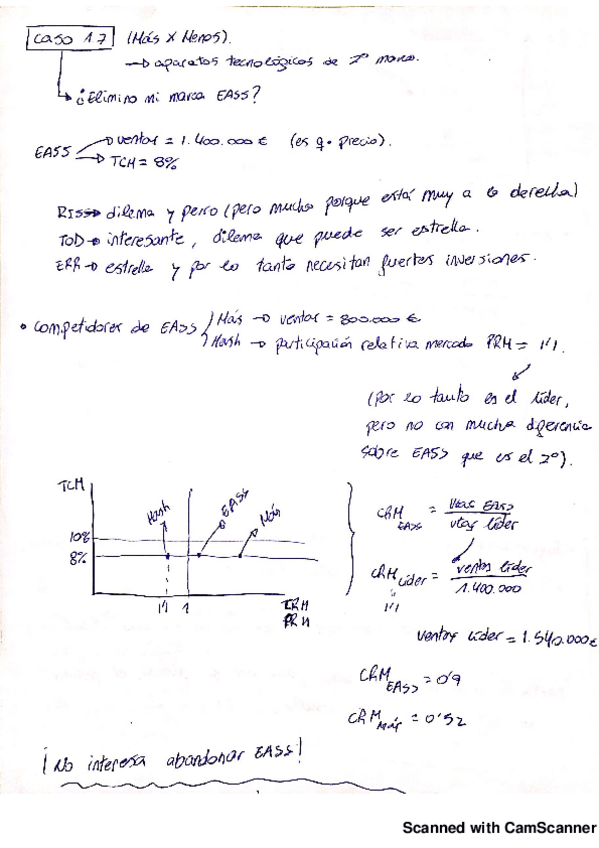 Caso 1.7 (Más x Menos).
→ aparatos tecnológicos de 2ª mano.
→ ¿Elimino mi marca EASS?
EASS → ventas = 1.400.000 € (es q · precio).
→ TCM = 8%
RISS → dilema y perro (pero mucho porque está muy a la derecha)
TOD → interesante, dilema que puede ser estrella.
ERR → estrella y por lo tanto necesitan fuertes inversiones.
• Competidores de EASS / Más → ventas = 800.000 €
Hash → participación relativa mercado PRM = 1'1.
(Por lo tanto es el líder,
pero no con mucha diferencia
sobre EASS que es el 2º).
TCM
Hash EASS Más
10%
8%
1'1 1
PRM
CRM EASS = Vtas EASS / vtas líder
CRM Líder = ventas líder / 1.400.000
1'1
Ventas líder = 1.540.000€
CRM EASS = 0'9
CRM Más = 0'52
¡No interesa abandonar EASS!
Scanned with CamScanner